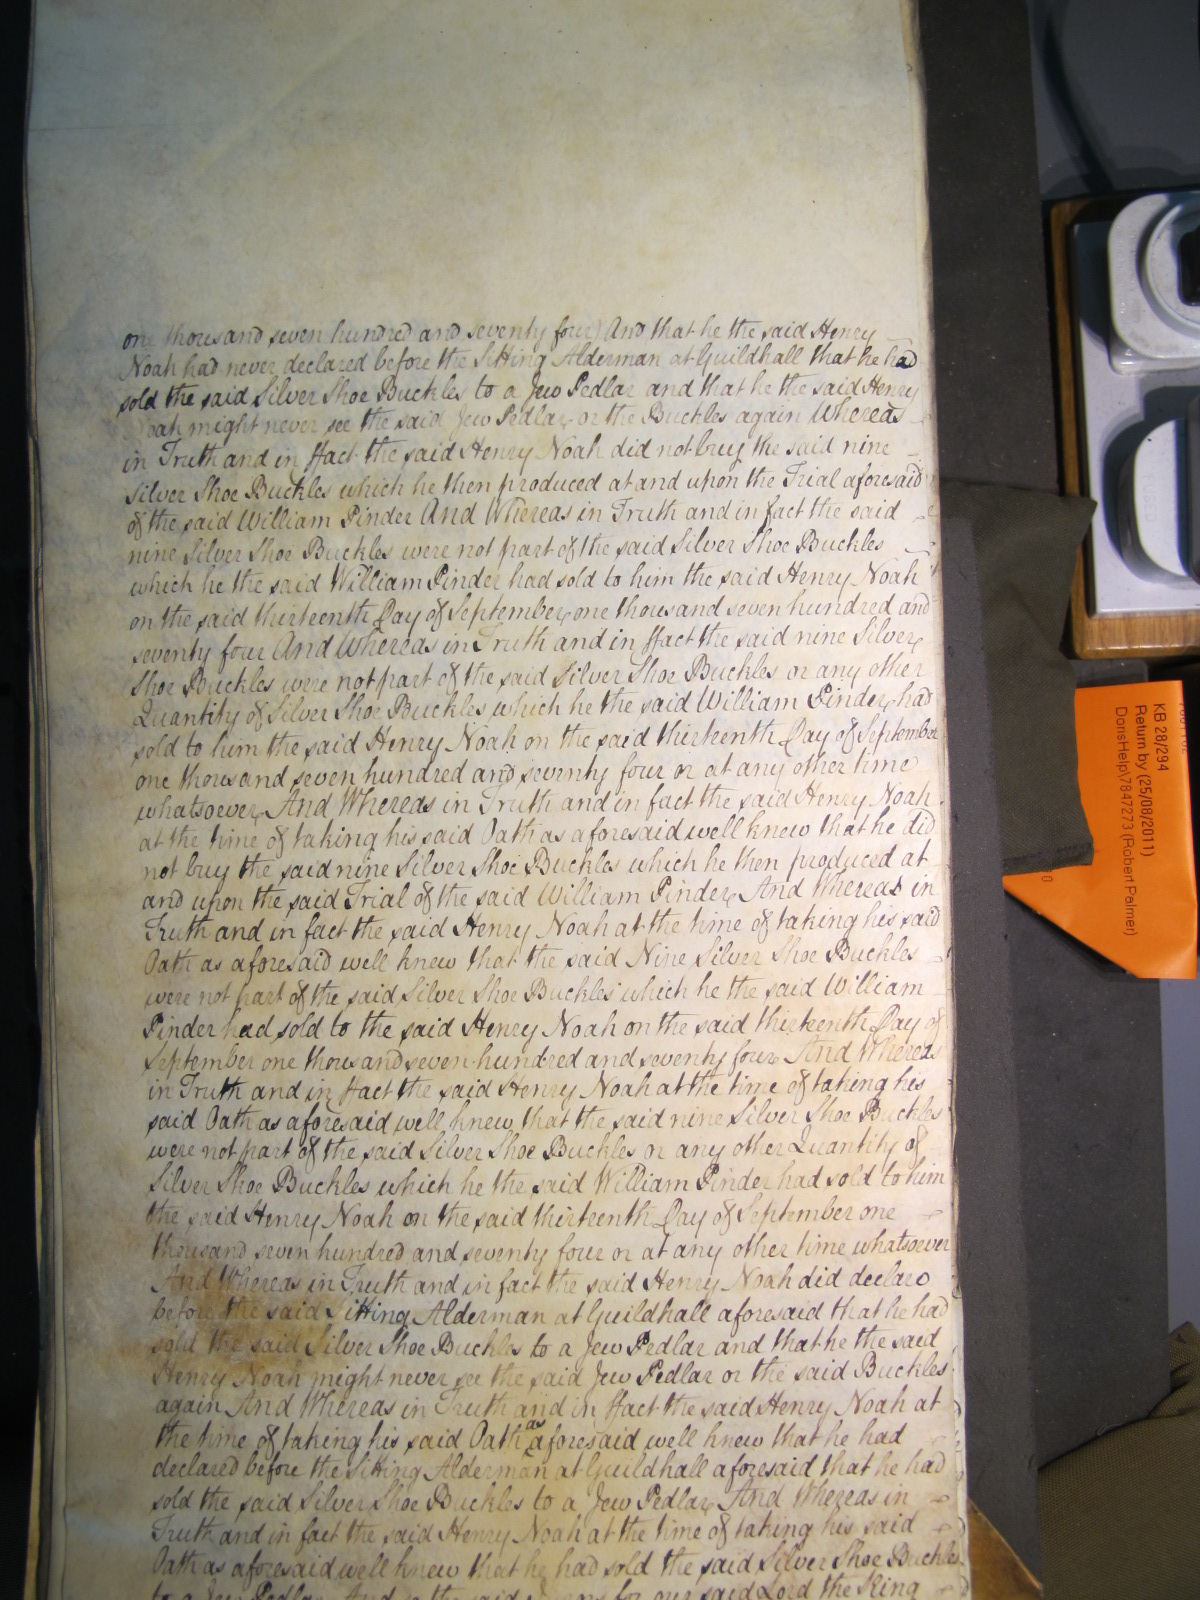 one thousand seven hundred and seventy four And that he the said Henry
Noah had never declared before the Sitting Alderman at Guildhall that he had
sold the said Silver Shoe Buckles to a Jew Pedlar and that he the said Henry
Noah might never see the said Jew Pedlar or the Buckles again Whereas
in Truth and in ffact the said Henry Noah did not buy the said nine
Silver Shoe Buckles which he then produced at and upon the Trial aforesaid
of the said William Pinder And Whereas in Truth and in fact the said
nine Silver Shoe Buckles were not part of the said Silver Shoe Buckles
which he the said William Pinder had sold to him the said Henry Noah
on the said thirteenth Day of September one thousand seven hundred and
seventy four And Whereas in Truth and in ffact the said nine Silver
Shoe Buckles were not part of the said Silver Shoe Buckles or any other
Quantity of Silver Shoe Buckles which he the said William Pinder had
sold to him the said Henry Noah on the said thirteenth Day of September
one thousand seven hundred and seventy four or at any other time
whatsoever And Whereas in Truth and in fact the said Henry Noah
at the time of taking his said Oath as aforesaid well knew that he did
not buy the said nine Silver Shoe Buckles which he then produced at
and upon the said Trial of the said William Pinder And Whereas in
Truth and in fact the said Henry Noah at the time of taking his said
Oath as aforesaid well knew that the said Nine Silver Shoe Buckles
were not part of the said Silver Shoe Buckles which he the said William
Pinder had sold to the said Henry Noah on the said thirteenth Day of
September one thousand seven hundred and seventy four And Whereas
in Truth and in ffact the said Henry Noah at the time of taking his
said Oath as aforesaid well knew that the said nine Silver Shoe Buckles
were not part of the said Silver Shoe Buckles or any other Quantity of
Silver Shoe Buckles which he the said William Pinder had sold to him
the said Henry Noah on the said thirteenth Day of September one
thousand seven hundred and seventy four or at any other time whatsoever
And Whereas in Truth and in fact the said Henry Noah did declare
before the said Sitting Alderman at Guildhall aforesaid that he had
sold the said Silver Shoe Buckles to a Jew Pedlar and that he the said
Henry Noah might never see the said Jew Pedlar or the said Buckles
again And Whereas in Truth and in ffact the said Henry Noah at
the time of taking his said Oath as aforesaid well knew that he had
declared before the Sitting Alderman at Guildhall aforesaid that he had
sold the said Silver Shoe Buckles to a Jew Pedlar And Whereas in
Truth and in fact the said Henry Noah at the time of taking his said
Oath as aforesaid well knew that he had sold the said Silver Shoe Buckles
to a Jew Pedlar And so the said Jurors for our said Lord the King
KB 28/294
Return by (25/08/2011)
DorisHelp\7847273 (Robert Palmer)